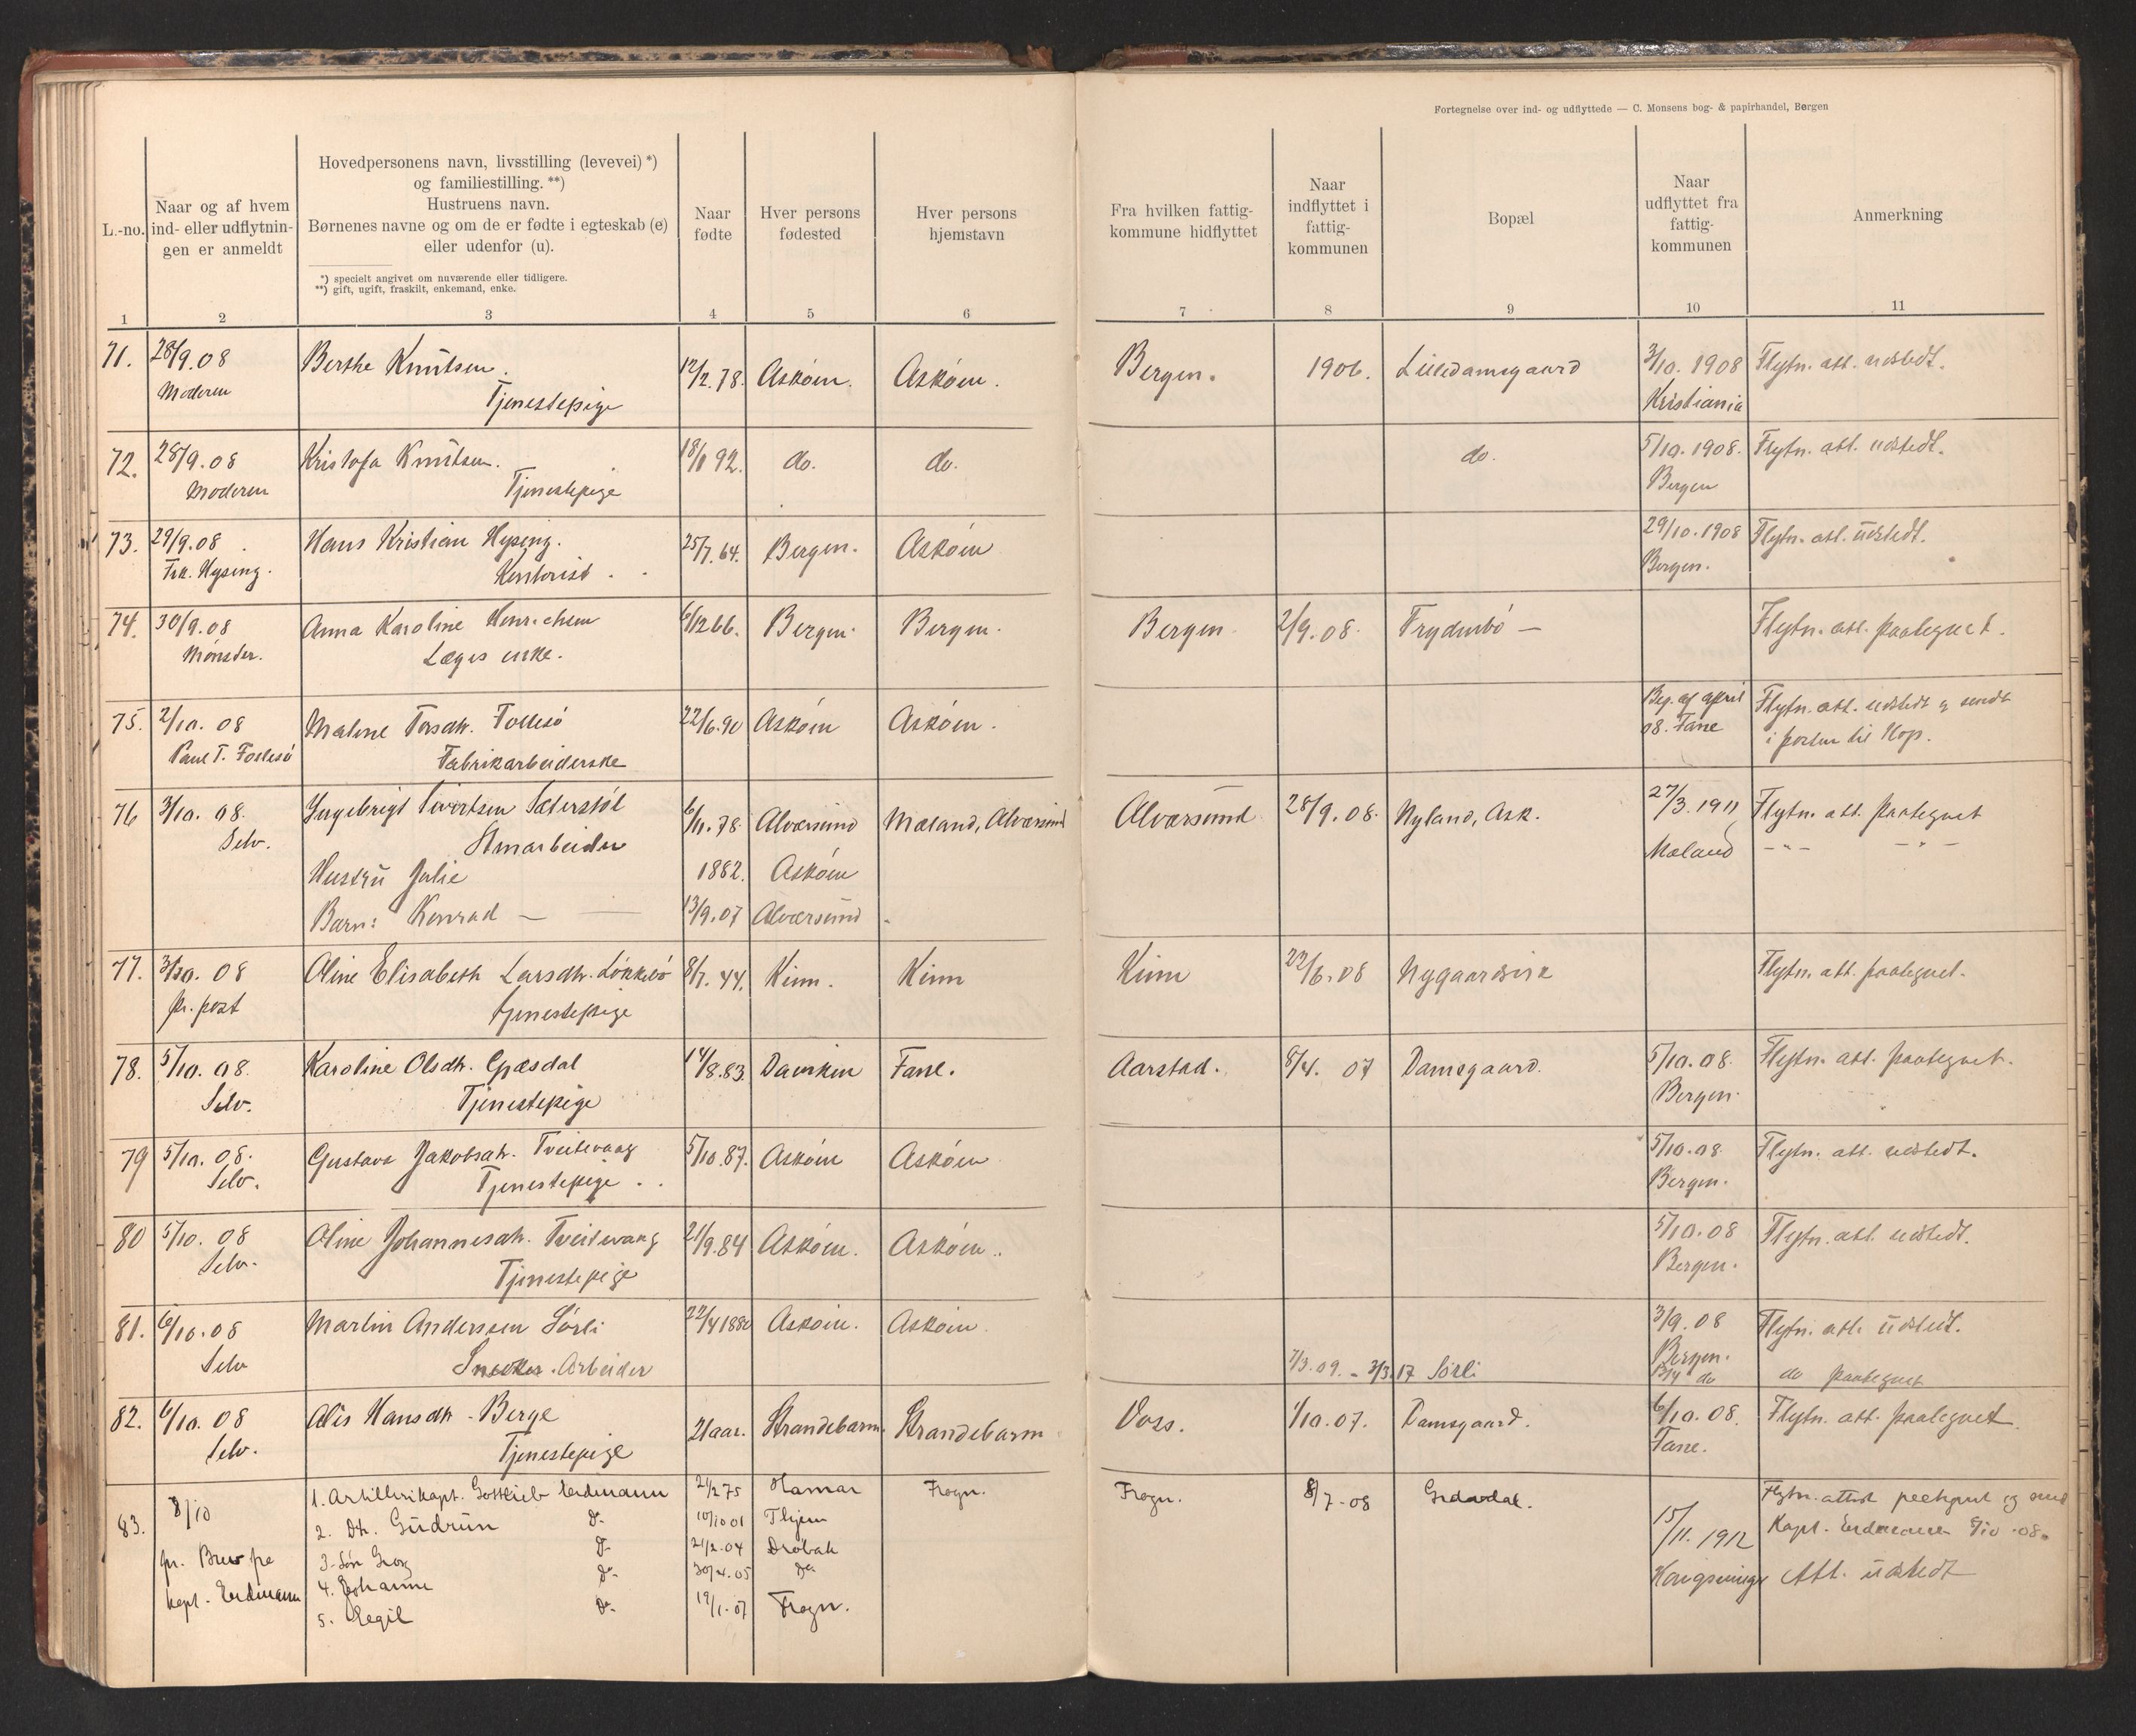 Fortegnelse over ind- og udflyttede — C. Monsens bog- & papirhandel, Bergen
L.-no.
Naar og af hvem
ind- eller udflytnin-
gen er anmeldt
Hovedpersonens navn, livsstilling (levevei) *)
og familiestilling. **)
Hustruens navn.
Børnenes navne og om de er fødte i egteskab (e)
eller udenfor (u).
*) specielt angivet om nuværende eller tidligere.
**) gift, ugift, fraskilt, enkemand, enke.
Naar
fødte
Hver persons
fødested
Hver persons
hjemstavn
Fra hvilken fattig-
kommune hidflyttet
Naar
indflyttet i
fattig-
kommunen
Bopæl
Naar
udflyttet fra
fattig-
kommunen
Anmerkning
1 2 3 4 5 6 7 8 9 10 11
71. 28/9.08 Berthe Knutsen. 12/2.78. Askøen. Askøen. Bergen. 1906. Lilledamsgaard 3/10. 1908 Flytn. att. udstedt.
Moderen Tjenestepige Kristiania
72. 28/9.08 Kristofa Knutsen. 18/8 92. do. do. do. 5/10. 1908. Flytn. att. udstedt.
Moderen Tjenestepige Bergen
73. 29/9.08 Hans Kristian Hysing. 25/7.64. Bergen. Askøen 29/10.1908 Flytn. att. udstedt.
Frk. Hysing. Kontorist Bergen.
74. 30/9.08 Anna Karoline Henrichsen 6/12 66. Bergen. Bergen. Bergen. 2/9.08. Frydenbø — Flytn. att. paategnet.
Mønster. Læges enke.
75. 2/10. 08 Malene Torsdtr. Follesø 22/6.90 Askøen Askøen. Beg. af april Flytn. att. udstedt og sendt
Paul T. Follesø Fabrikarbeiderske 08. Fane i posten til Hop.
76 3/10. 08. Ingebrigt Sivertsen Sæterstøl 6/11.78. Alversund Mæland, Alversund Alversund 28/9.08. Nyland, Ask. 27/3.1911 Flytn. att. paategnet
Selv. Stenarbeider Mæland - " - - " -
Hustru Julie 1882. Askøen
Barn: Konrad — — 13/9.07 Alversund
77. 3/10. 08 Oline Elisabeth Larsdtr. Løkkebø 8/7. 44. Kinn. Kinn Kinn 22/6.08 Nygaardsvik Flytn. att. paategnet.
pr. post Tjenestepige
78. 5/10. 08. Karoline Olsdtr. Gjæsdal 14/8.83. Daviken Fane. Aarstad. 8/4. 07 Damsgaard. 5/10.08. Flytn. att. paategnet.
Selv. Tjenestepige Bergen.
79 5/10. 08. Gustava Jakobsdtr. Tveitevaag 5/10.87. Askøen Askøen 5/10.08. Flytn. att. udstedt.
Selv. Tjenestepige Bergen.
80 5/10. 08 Oline Johannesdtr. Tveitevaag 21/9.84 Askøen. Askøen. 5/10.08 Flytn. att. udstedt.
Selv. Tjenestepige Bergen.
81. 6/10.08 Martin Andersen Sørli 22/4 1880 Askøen. Askøen. 3/9.08 Flytn. att. udstedt.
Selv Snedker. Arbeider 7/3.09. - 3/3.17 Sørli Bergen. do paategnet
do
82. 6/10. 08 Hansdtr. Berge 21 aar. Strandebarm. Strandebarm Voss. 1/10.07. Damsgaard. 6/10.08. Flytn. att. paategnet.
Selv. Tjenestepige Fane.
83. 8/10 1. Artillerikapt. Gottlieb Erdmann 21/2 75 Hamar Frogn. Frogn. 8/7-08 15/11.1912 Flytn. attest og
pr. Brev fra 2. Dtr. Gudrun Do 10/10 01 Kapt. Erdmann 8/10.08.
Kapt. Erdmann 3. Søn Georg Do 21/2.04 Drøbak Kongsvinger Att. udstedt
4. Johanne Do 30/4.05 Do
5. Egil Do 19/1.07 Frogn.